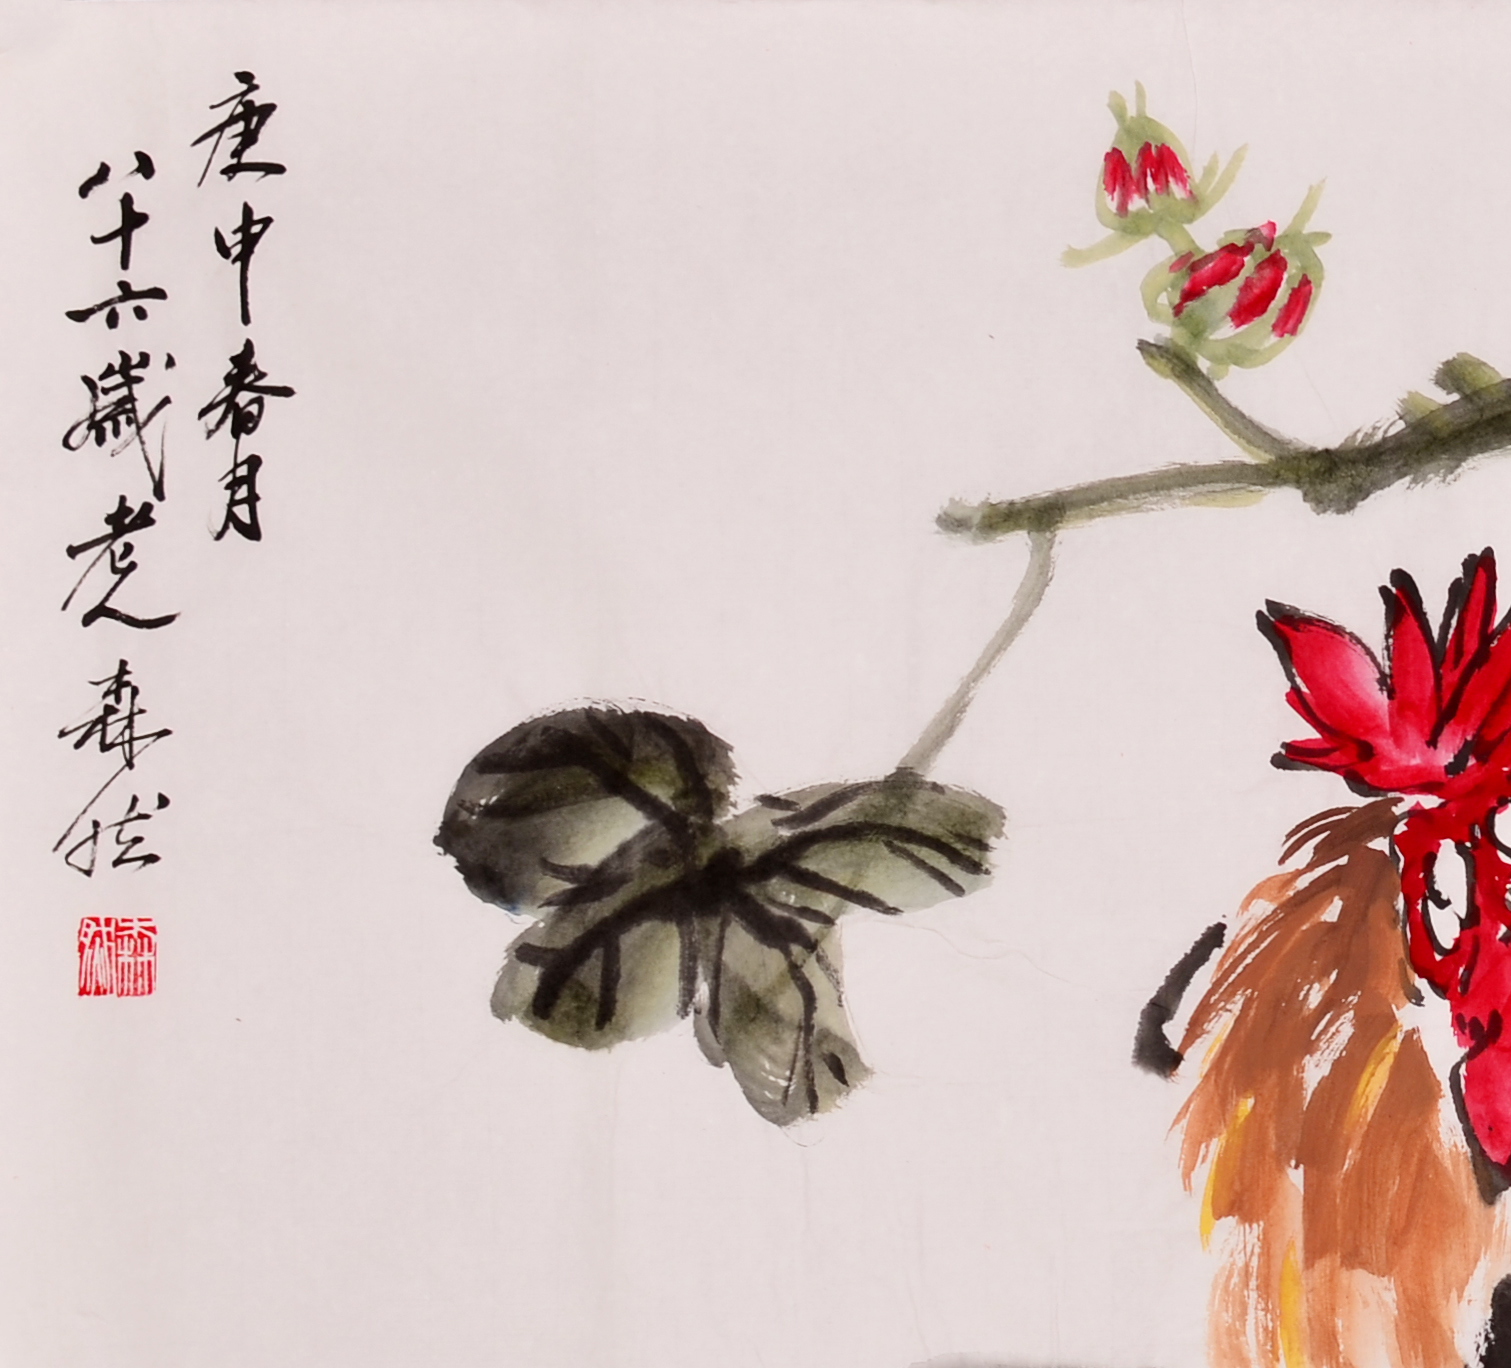 庚申春月
八十六歲老人森然
森然